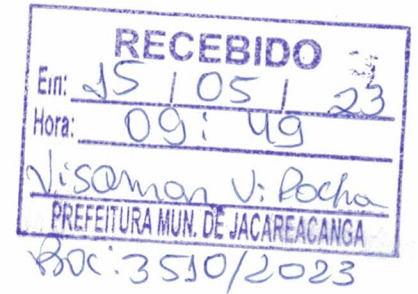 RECEBIDO
Em: 15 / 05 / 23
Hora: 09: 49
V. Rocha
PREFEITURA MUN. DE JACAREACANGA
3510/2023